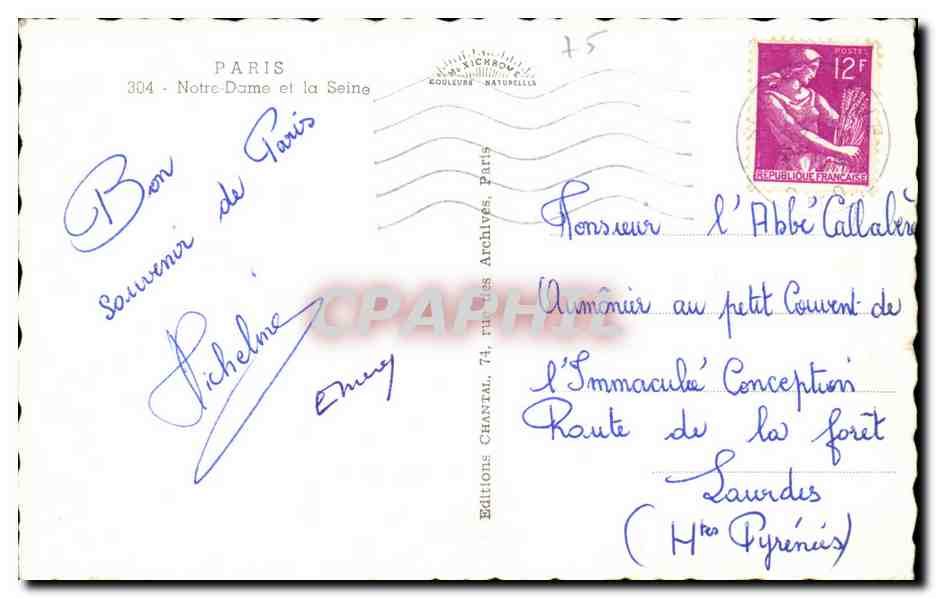 PARIS
304 - Notre-Dame et la Seine
MEXICHROME
COULEURS NATURELLES
75
POSTES
12F
REPUBLIQUE FRANÇAISE
Bon
souvenir de Paris
Michelmé
Emery
Editions CHANTAL, 74, rue des Archives, Paris
Monsieur l'Abbé Callabère
Aumônier au petit Couvent de
l'Immaculée Conception
Route de la forêt
Lourdes
(Htes Pyrénées)
CPAPHIL